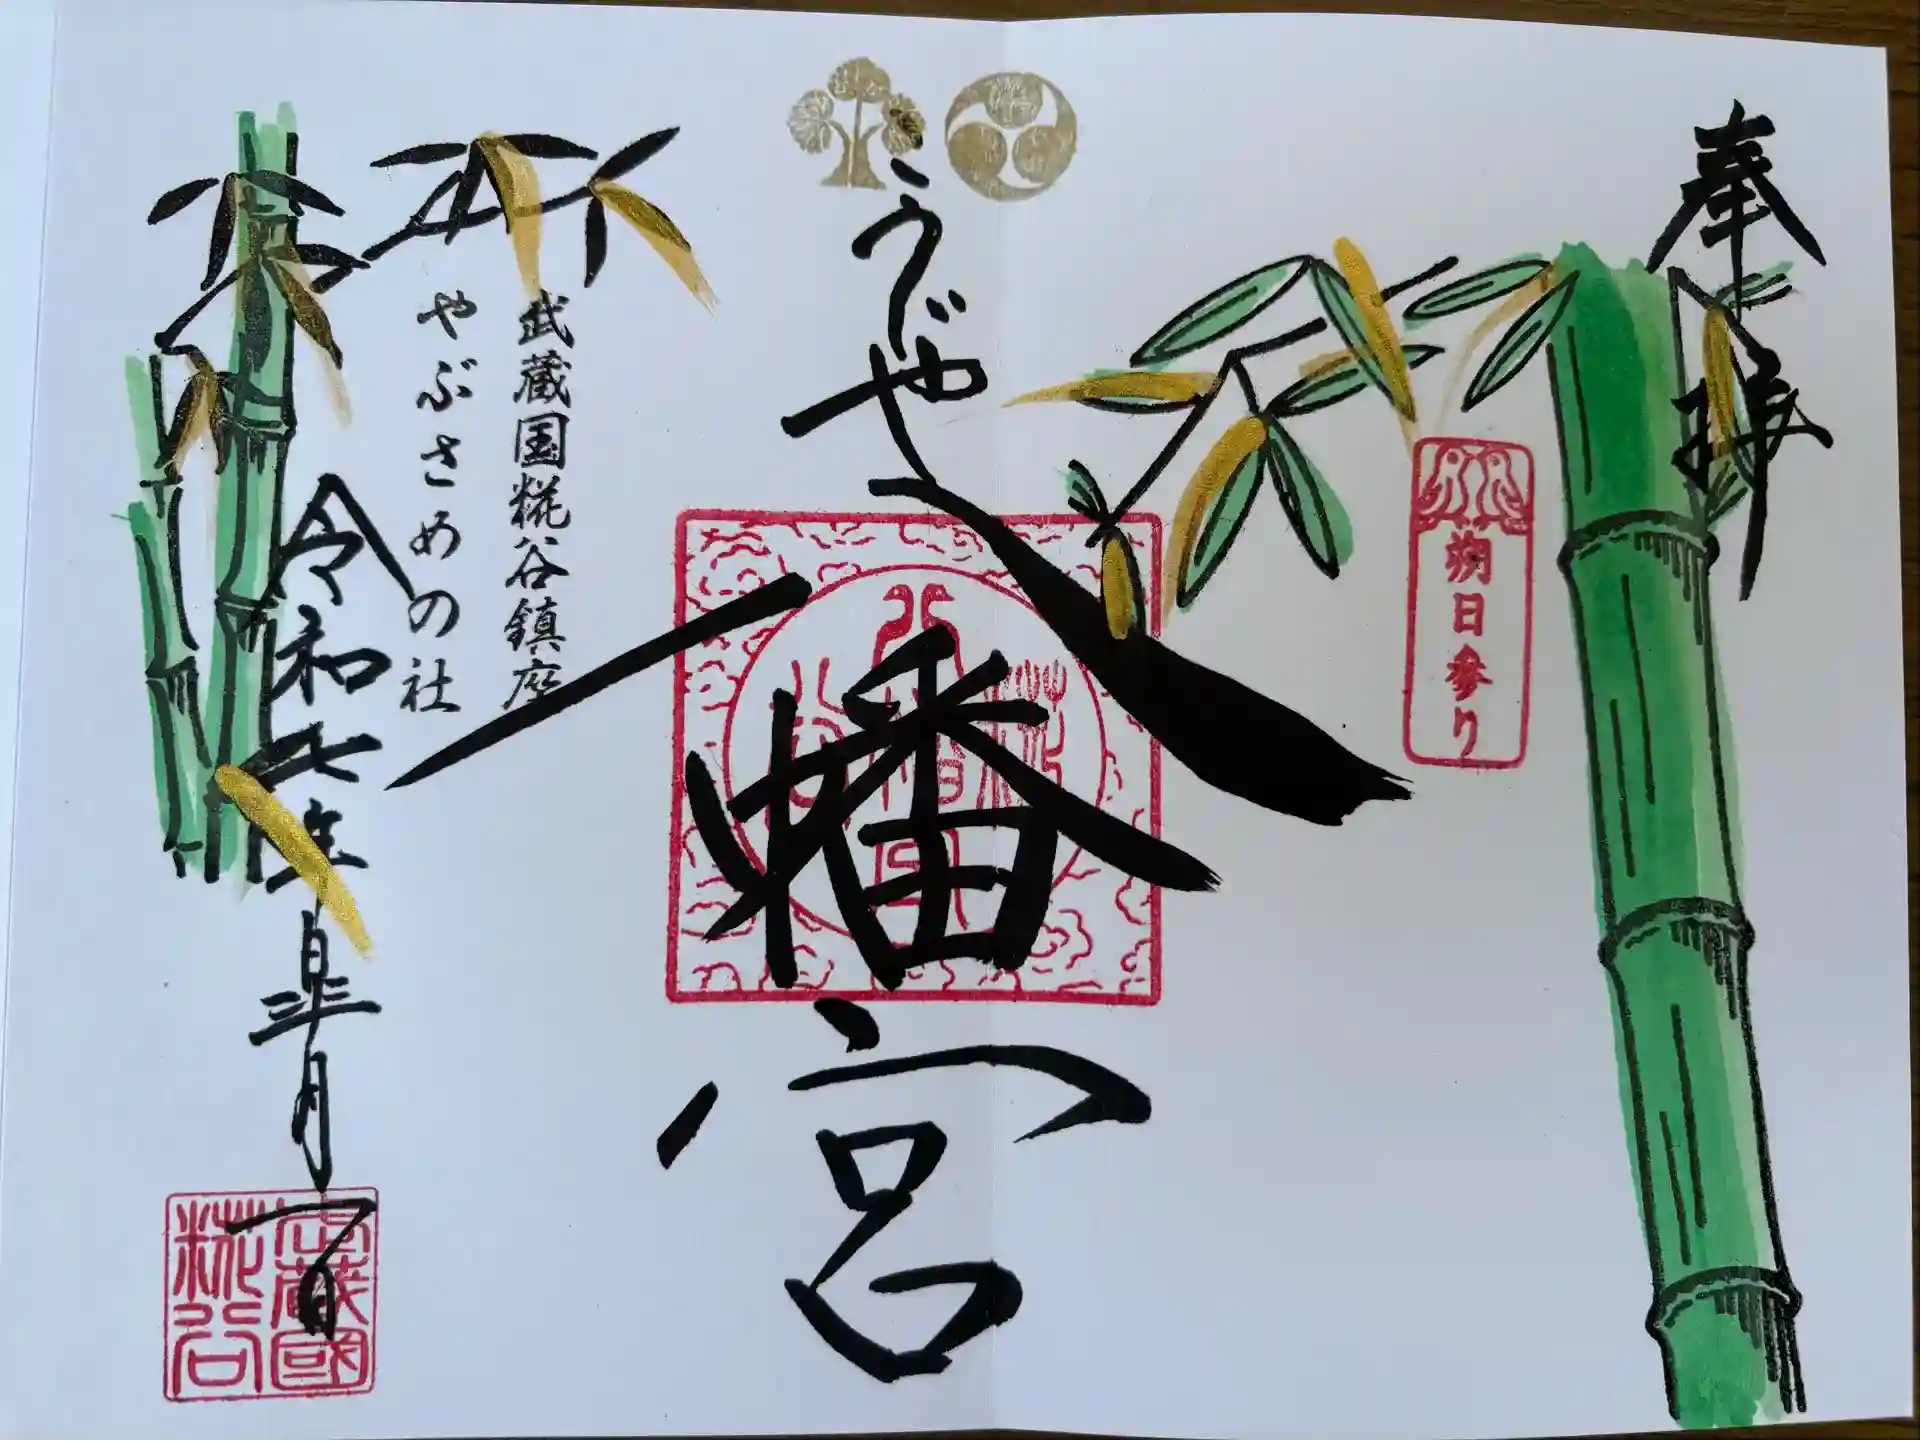 奉拝
朔日参り
こうじや
八幡宮
武蔵国糀谷鎮座
やぶさめの社
令和七年皐月一日
武蔵國
糀谷